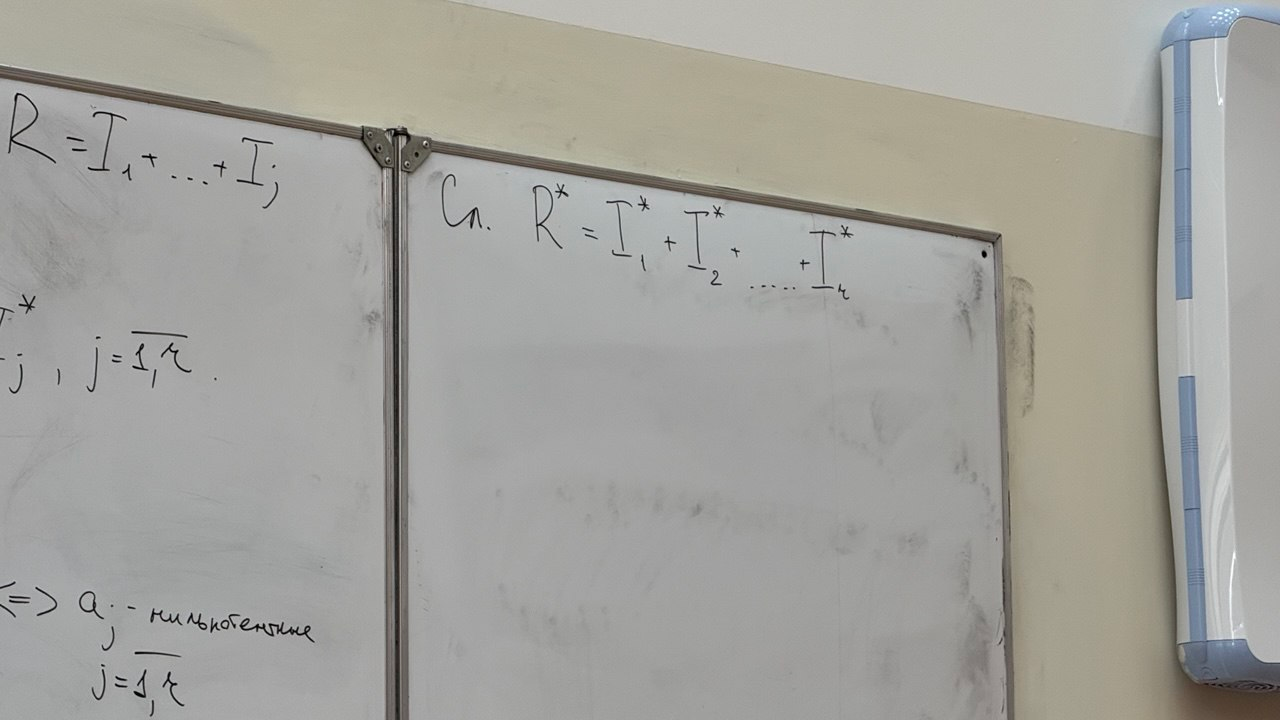 R = I₁ + ... + Iⱼ
*
j, j = 1,r.
<=> aⱼ - нильпотентные
j = 1,r
Сл. R* = I₁* + I₂* + ..... + Iᵣ*